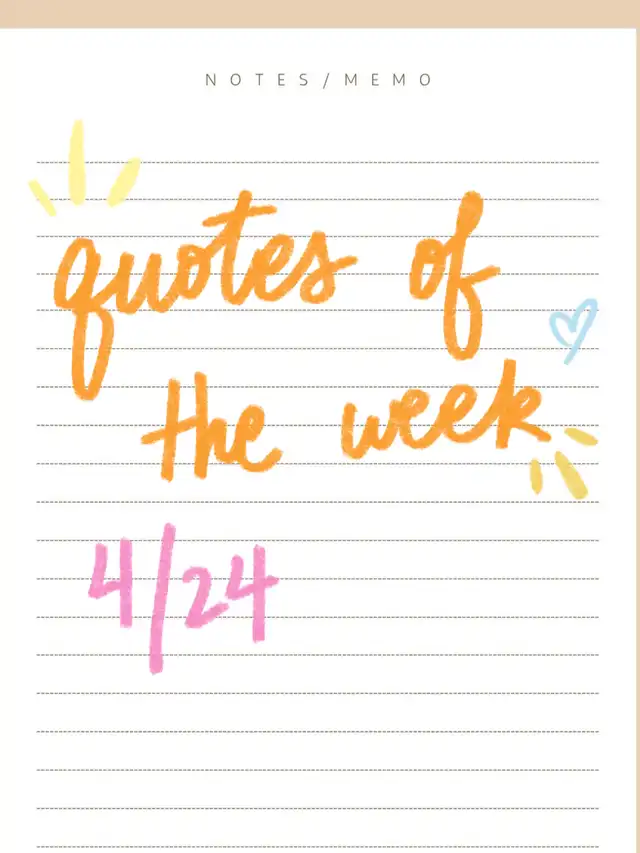 NOTES/MEMO
quotes of
the week
4/24